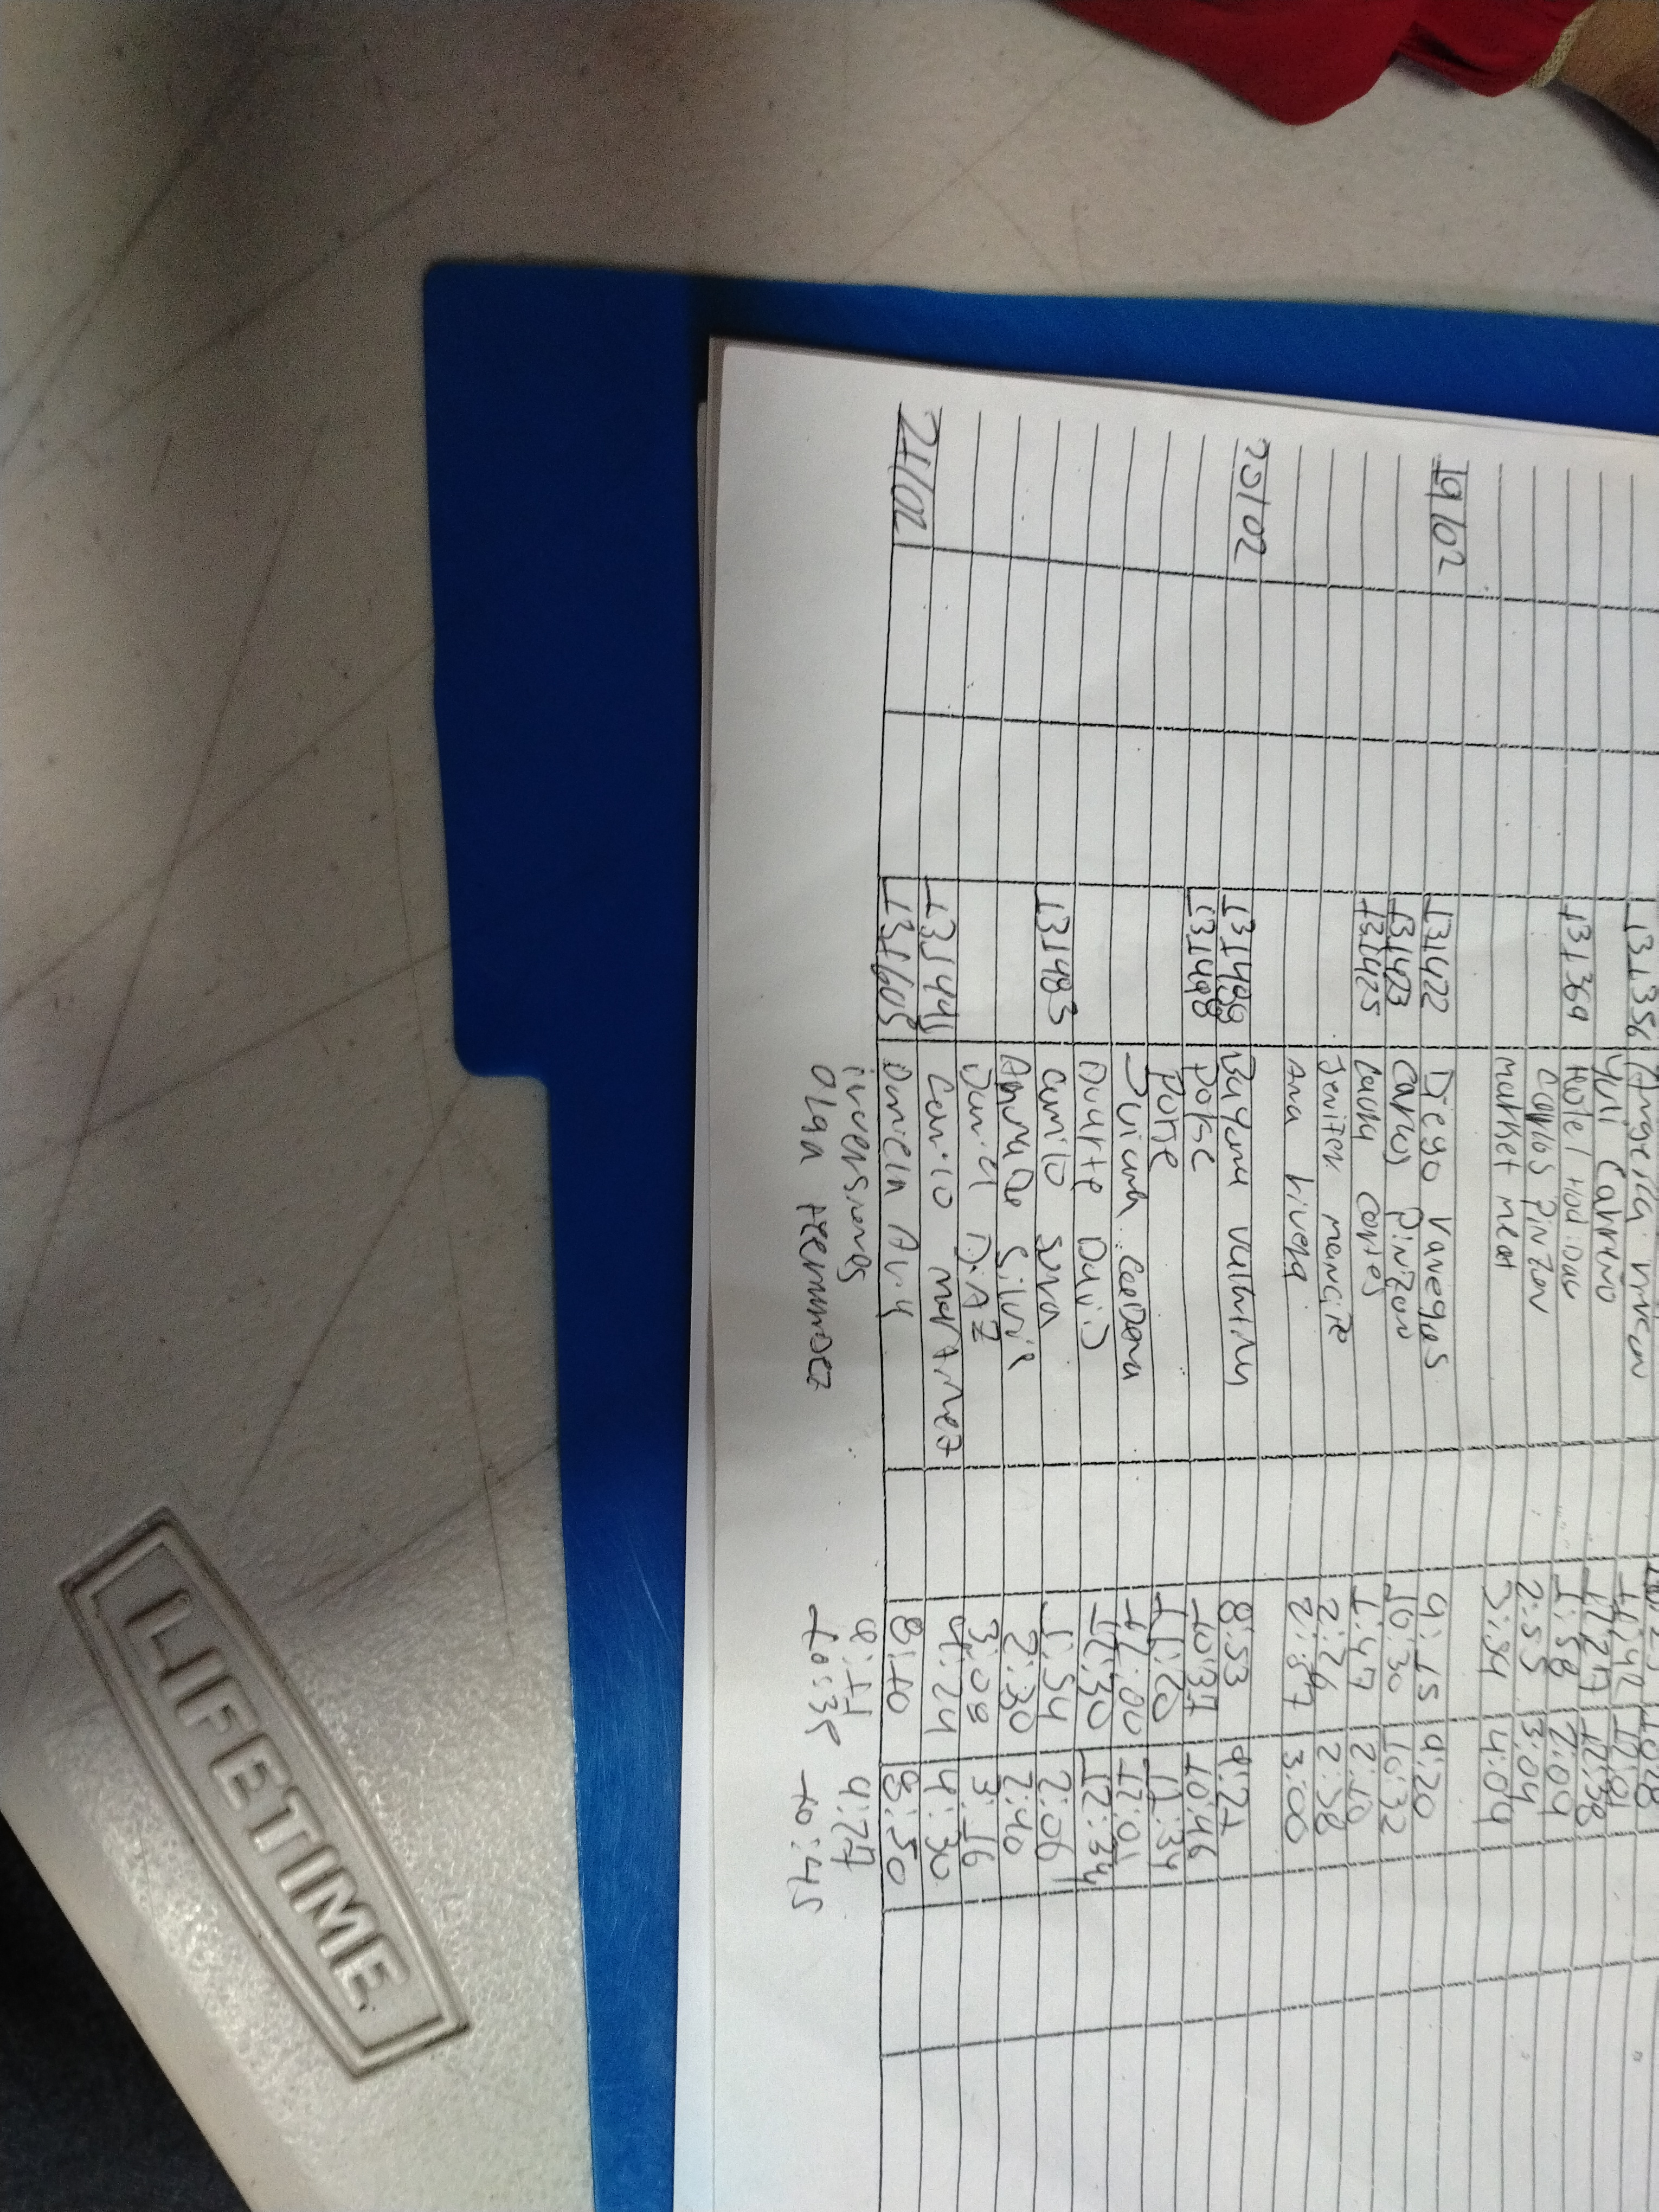 131356 Angelica
Yuli Carreno 11:42 12:01
131369 Hotel Hou:Dau 12:27 12:38
Carlos Pinzon 1:58 2:09
Market meat 2:55 3:04
3:34 4:04
19/02 131422 Diego Vanegas 9:15 9:20
131423 Carlos Pinzon 10:30 10:32
131425 Laidy Cortes 1:47 2:10
Jenifer mancipe 2:26 2:38
Ana Rivera 2:57 3:00
20/02 131499 Bayona Valentina 8:53 9:21
131498 Polse 10:37 10:46
Porse 11:20 11:34
Juliana CeeDena 12:00 12:01
Duarte Dauid 12:30 12:34
131483 Camilo 1:54 2:06
Amanda Silvia 2:30 2:40
Daniel DiAZ 3:08 3:16
Camilo martinez 4:24 4:30
21/02 131605 Daniela 8:40 8:50
inversiones 9:27
Olga Hernandez 10:35 10:45
LIFETIME